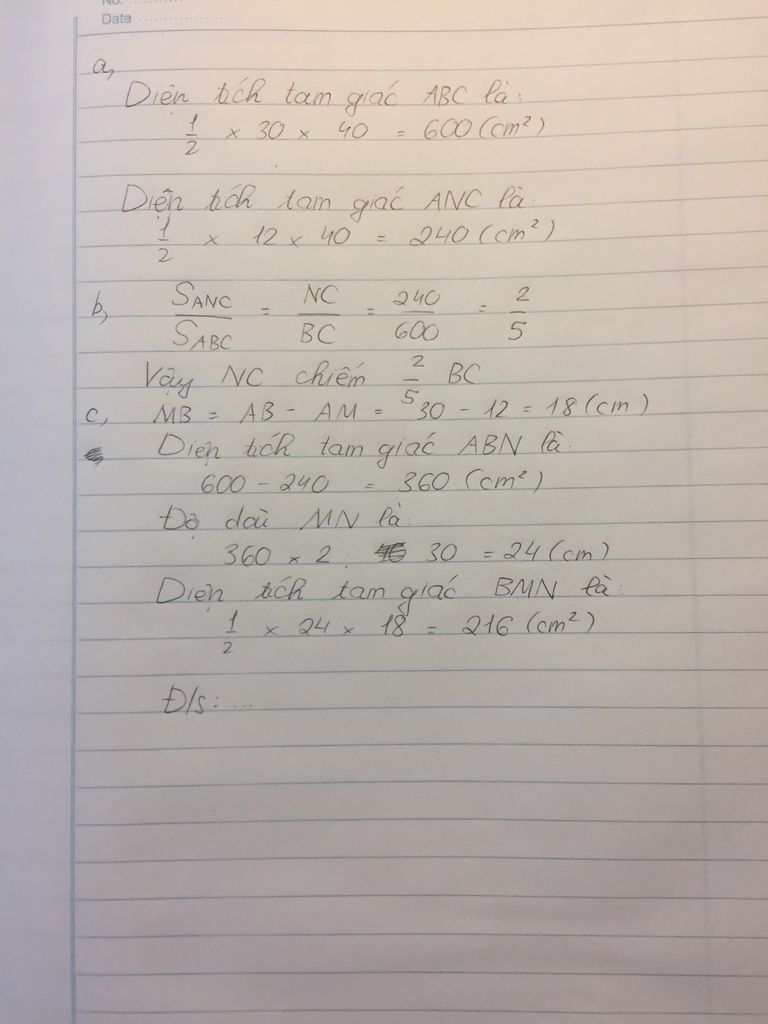 No. ............
Date ..................
a,
Diện tích tam giác ABC là:
1/2 x 30 x 40 = 600 (cm²)
Diện tích tam giác ANC là:
1/2 x 12 x 40 = 240 (cm²)
b, S_ANC/S_ABC = NC/BC = 240/600 = 2/5
Vậy NC chiếm 2/5 BC
c, MB = AB - AM = 30 - 12 = 18 (cm)
Diện tích tam giác ABN là:
600 - 240 = 360 (cm²)
Độ dài MN là:
360 x 2 : 30 = 24 (cm)
Diện tích tam giác BMN là:
1/2 x 24 x 18 = 216 (cm²)
Đ/s: ...